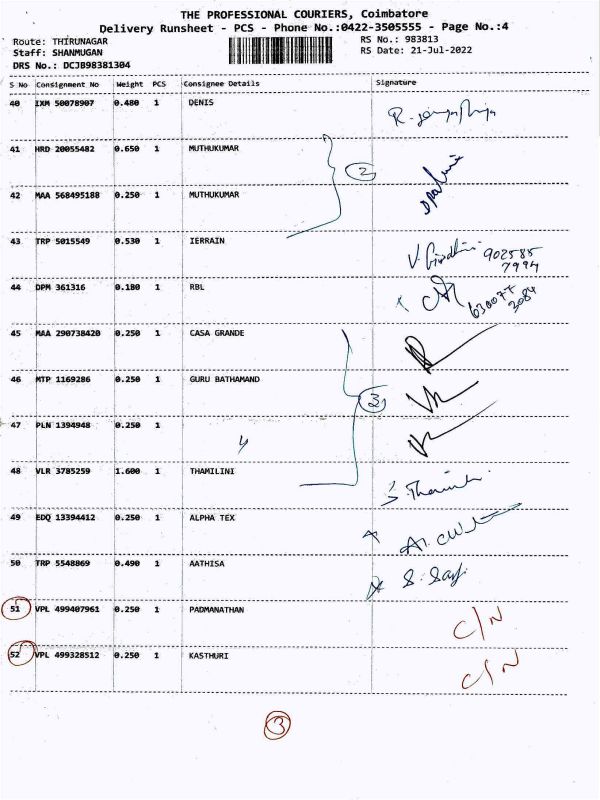 THE PROFESSIONAL COURIERS, Coimbatore
Delivery Runsheet - PCS - Phone No.:0422-3505555 - Page No.:4
Route: THIRUNAGAR
Staff: SHANMUGAN
DRS No.: DCJB98381304
RS No.: 983813
RS Date: 21-Jul-2022
S No Consignment No Weight PCS Consignee Details Signature
40 IXM 50078907 0.480 1 DENIS
41 HRD 20055482 0.650 1 MUTHUKUMAR
2
42 MAA 568495188 0.250 1 MUTHUKUMAR
43 TRP 5015549 0.530 1 IERRAIN 902585
7994
44 DPM 361316 0.180 1 RBL 630077
3084
45 MAA 290738420 0.250 1 CASA GRANDE
46 MTP 1169286 0.250 1 GURU BATHAMAND
3
47 PLN 1394948 0.250 1
48 VLR 3785259 1.600 1 THAMILINI
49 EDQ 13394412 0.250 1 ALPHA TEX
50 TRP 5548869 0.490 1 AATHISA
51 VPL 499407961 0.250 1 PADMANATHAN C/N
52 VPL 499328512 0.250 1 KASTHURI C/N
3